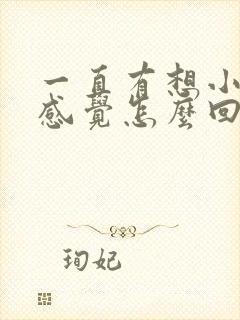 一直有想小
感覺怎麼回
珣妃